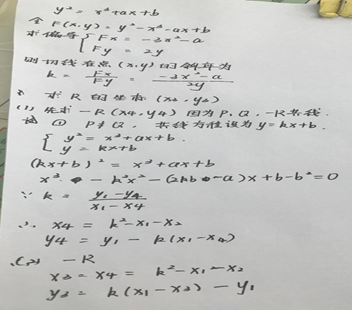 y² = x³+ax+b
令 F(x,y) = y²-x³-ax+b
求偏导 { Fx = -3x²-a
Fy = 2y
则切线在点(x,y)的斜率为
k = Fx/Fy = -3x²-a/2y
求 R 的坐标 (x3, y3)
(1) 先求 -R (x4, y4) 因为 P, Q, -R 共线.
① P≠Q, 共线方程设为 y=kx+b.
{ y² = x³+ax+b.
y = kx+b
(kx+b)² = x³+ax+b
x³ - k²x² - (2kb-a)x + b-b² = 0
∵ k = y1-y4/x1-x4
∴ x4 = k²-x1-x2
y4 = y1 - k(x1-x4)
(2) -R
x3 = x4 = k²-x1-x2
y3 = k(x1-x3) - y1